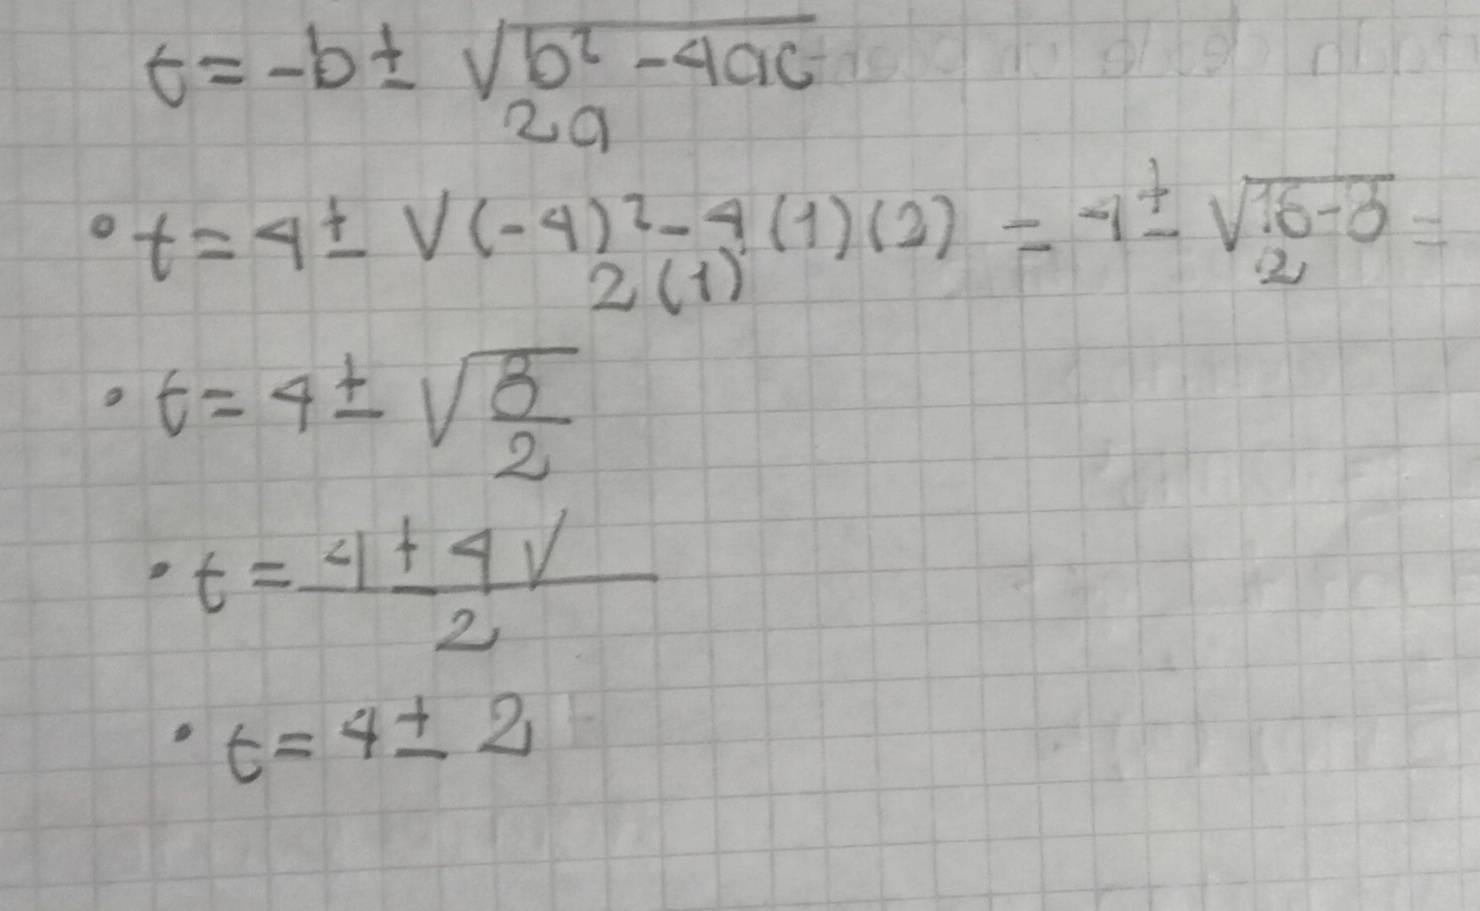 t = -b ± √b² - 4ac
2a
• t = 4 ± √(-4)² - 4(1)(2) = 4 ± √16-8 =
2(1) 2
• t = 4 ± √8
2
• t = 4 ± 4√
2
• t = 4 ± 2